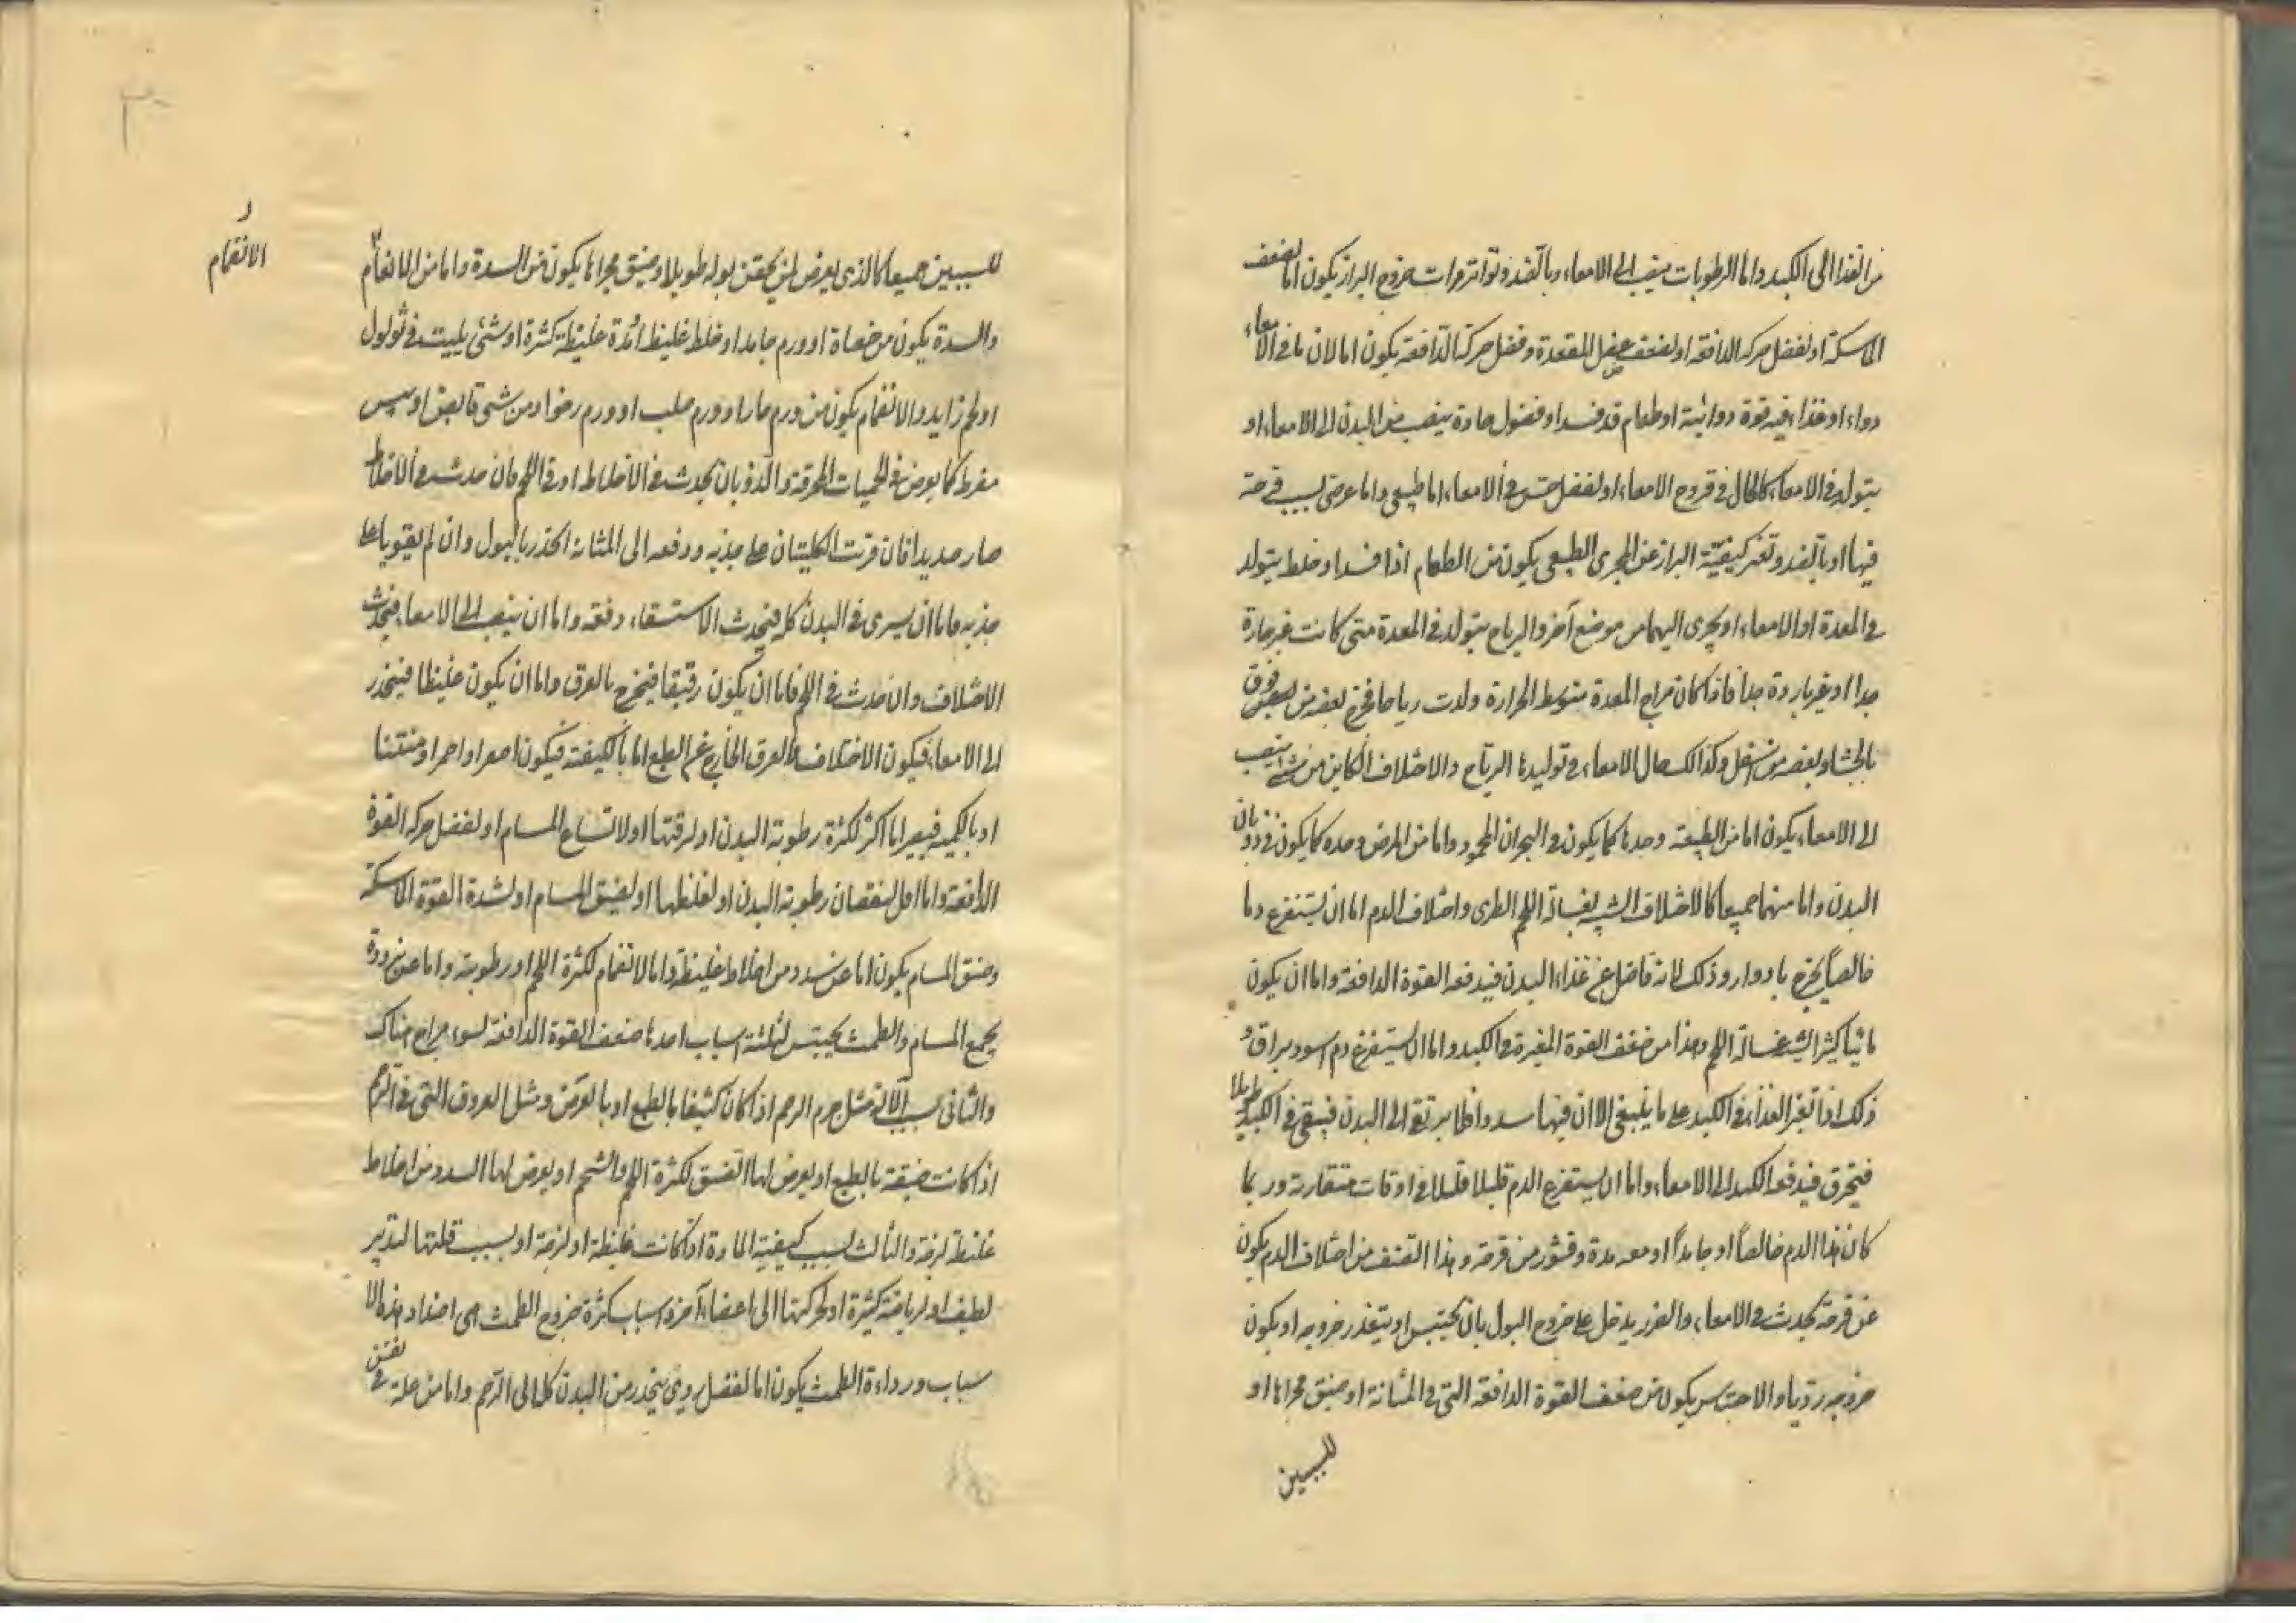 من الغذا الى الكبد واما الرطوبات ينصب الى الامعاء وبالضد وتواتر مرات خروج البراز يكون اما لضعف
الماسكة او لفضل حركه الدافعة او لضعف عضل المقعدة وفضل حركة الدافعة يكون اما لان ما في الامعاء
دواء او غذاء فيه قوة دوائية او طعام قد فسد او فضول حادة ينصب من البدن الى الامعاء او
يتولد في الامعاء كالحال في قروح الامعاء او لفضل حس في الامعاء اما طبيعى واما عرضى بسبب قرحة
فيها او بالضد وتغير كيفيّة البراز عن المجرى الطبيعى يكون من الطعام اذا فسد او خلط يتولد
في المعدة او الامعاء او يجرى اليهما من موضع آخر والرياح يتولد في المعدة متى كانت غير حارة
جدا او غير باردة جدا فاذا كان مزاج المعدة متوسط الحرارة ولدت رياحا فخرج بعضه من فوق
بالجشاء وبعضه من اسفل وكذالك حال الامعاء في توليدها الرياح والاختلاف الكاين من شئ ينصب
الى الامعاء يكون اما من الطبيعة وحدها كما يكون في البحران المحمود واما من المرض وحده كما يكون في ذوبان
البدن واما منهما جميعا كالاختلاف الشبيه بغسالة اللحم الطرى واختلاف الدم اما ان يستفرغ دما
خالصاً يخرج بادوار وذلك لانه فاضل عن غذاء البدن فيدفعه القوة الدافعة واما ان يكون
مائيا كثيرا يشبه غسالة اللحم وهذا من ضعف القوة المغيرة في الكبد واما ان يستفرغ دم اسود براق و
ذلك اذا تغير الغذاء في الكبد على ما ينبغى الا ان فيها سددا فلا يرتقى الى البدن فيبقى في الكبد طويلا
فيحترق فيدفعه الكبد الى الامعاء واما ان يستفرغ الدم قليلا قليلا في اوقات متقاربة وربما
كان هذا الدم خالصاً او جامداً او معه مدة وقشور من قرحة وهذا الصنف من اختلاف الدم يكون
عن قرحة تحدث في الامعاء والضرر يدخل على خروج البول بان يحتبس او يتعذر خروجه او يكون
خروجه رديا والاحتباس يكون من ضعف القوة الدافعة التى في المثانة او ضيق مجراها او
للسببين
للسببين جميعا كالذى يعرض لمن يحقن بوله طويلا وضيق مجراها يكون من السدة واما من الانضمام
الانضمام
والسدة يكون من حصاة او ورم جامد او خلط غليظ او مدة غليظة كثرة او شئ يثبت فيه ثولول
او لحم زايد والانضمام يكون من ورم حار او ورم صلب او ورم رخو او من شئ قابض او يبس
مفرط كما يعرض في الحميات المحرقة والذوبان يحدث في الاخلاط او في اللحم فان حدث في الاخلاط
صار صديدا فان قويت الكليتان على جذبه ودفعه الى المثانة انحدر بالبول وان لم يقويا على
جذبه فاما ان يسرى في البدن كله فيحدث الاستسقاء دفعة واما ان ينصب الى الامعاء فيحدث
الاختلاف وان حدث في اللحم فاما ان يكون رقيقا فيخرج بالعرق واما ان يكون غليظا فينحدر
الى الامعاء فيكون الاختلاف والعرق الخارج عن الطبع اما بالكيفية فيكون اصفر او احمر او منتنا
او بالكمية فيصير اما اكثر لكثرة رطوبة البدن او لرقتها او لاتساع المسام او لفضل حركه القوة
الدافعة واما اقل لنقصان رطوبة البدن او لغلظها او لضيق المسام او لشدة القوة الماسكة
وضيق المسام يكون اما عن سدد من اخلاط غليظة واما لانضمام لكثرة اللحم او رطوبته واما عن برودة
يجمع المسام والطمث يحتبس لثلثة اسباب احدها ضعف القوة الدافعة لسوء مزاج هناك
والثانى بسبب الآلة مثل جرم الرحم اذا كان كثيفا بالطبع او بالعرض ومثل العروق التى في الرحم
اذا كانت ضيقة بالطبع او يعرض لها الضيق لكثرة اللحم والشحم او يعرض لها السدد من اخلاط
غليظة لزجة والثالث بسبب كيفية المادة اذا كانت غليظة او لزجة او بسبب قلتها لتدبير
لطيف او لرياضة كثيرة او لحركتها الى اعضاء آخر واسباب كثرة خروج الطمث هى اضداد هذه الا
سباب ورداءة الطمث يكون اما لفضل ردى ينحدر من البدن كله الى الرحم واما من علة في نفس